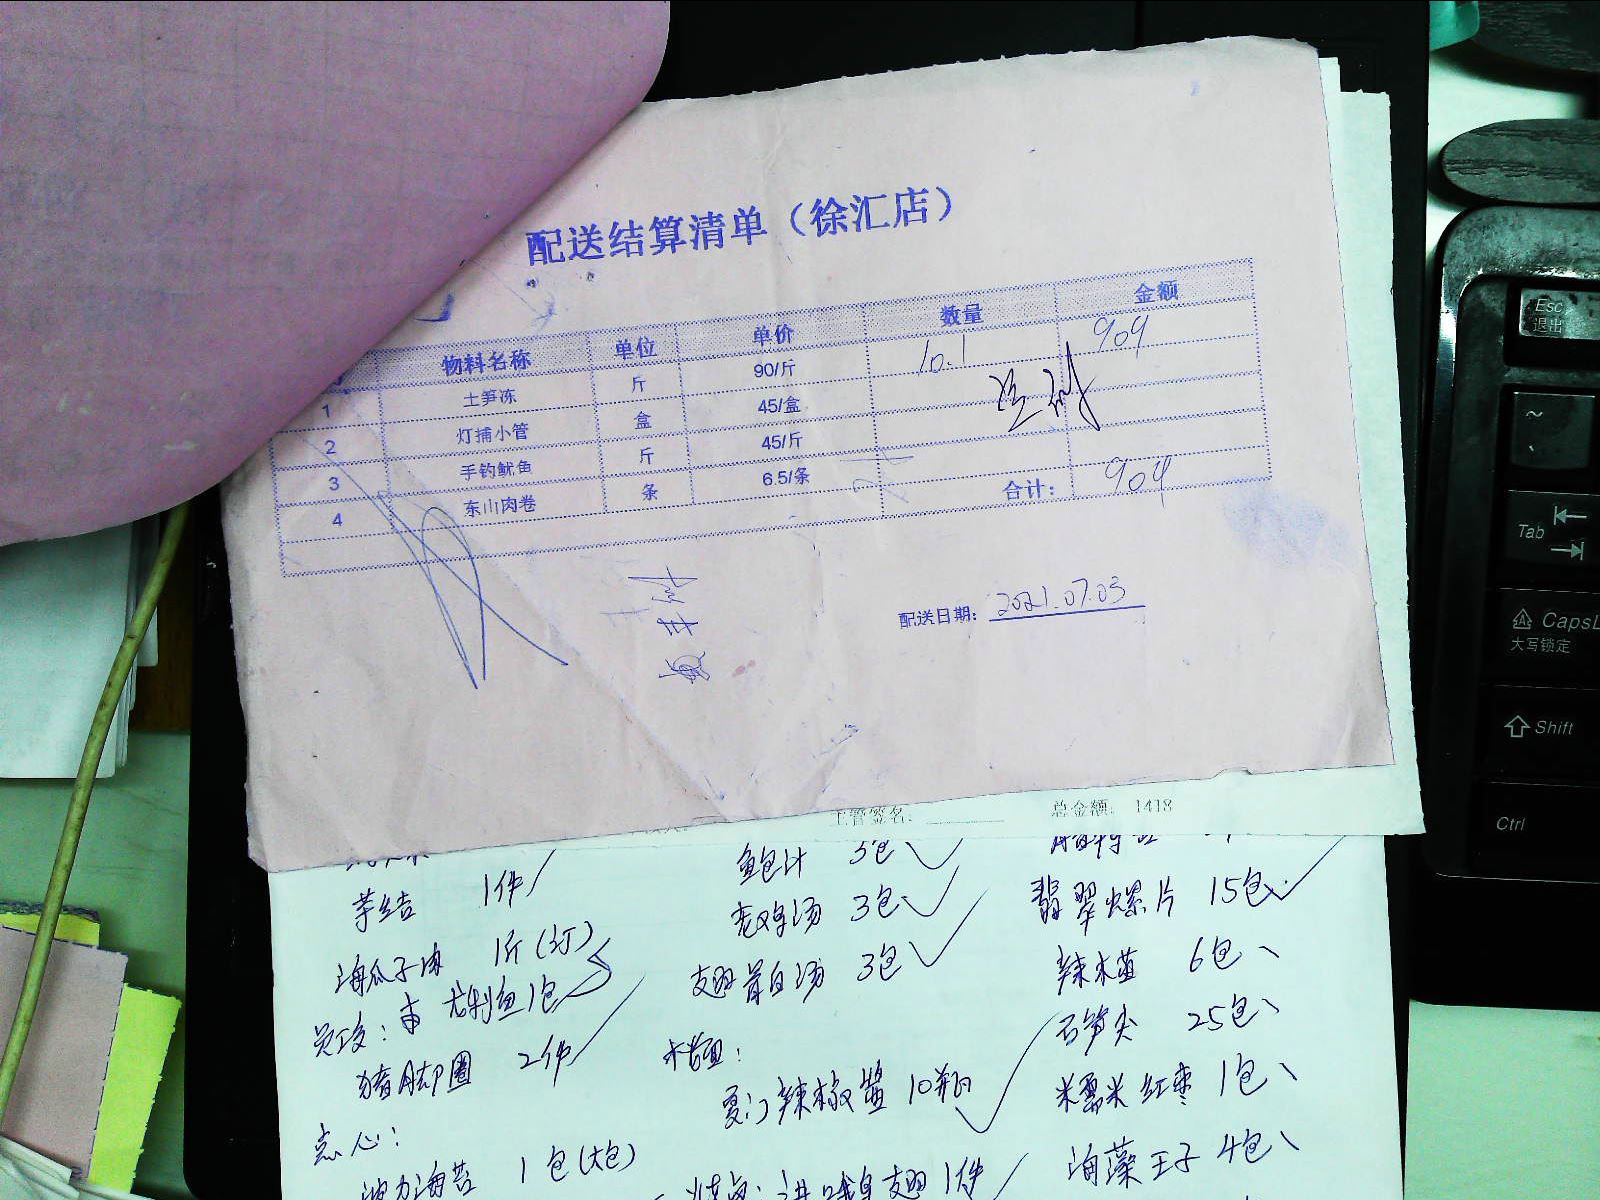 配送结算清单（徐汇店）
物料名称 单位 单价 数量 金额
1 土笋冻 斤 90/斤 10.1 909
2 灯捕小管 盒 45/盒
3 手钓鱿鱼 斤 45/斤
4 东山肉卷 条 6.5/条
合计： 909
配送日期： 2021.07.03
主管签名： 总金额： 1418
鱼包汁 5包
芋结 1件
老鸡汤 3包
翡翠螺片 15包
海瓜子肉 1斤(订)
翅首白汤 3包
辣木苗 6包
1包
石笋尖 25包
猪脚圈 2件
厦门辣椒酱 10瓶
糯米红枣 1包
点心：
海藻王子 4包
海苔 1包(大包)
翅 1件
Esc
退出
Tab
CapsL
大写锁定
Shift
Ctrl